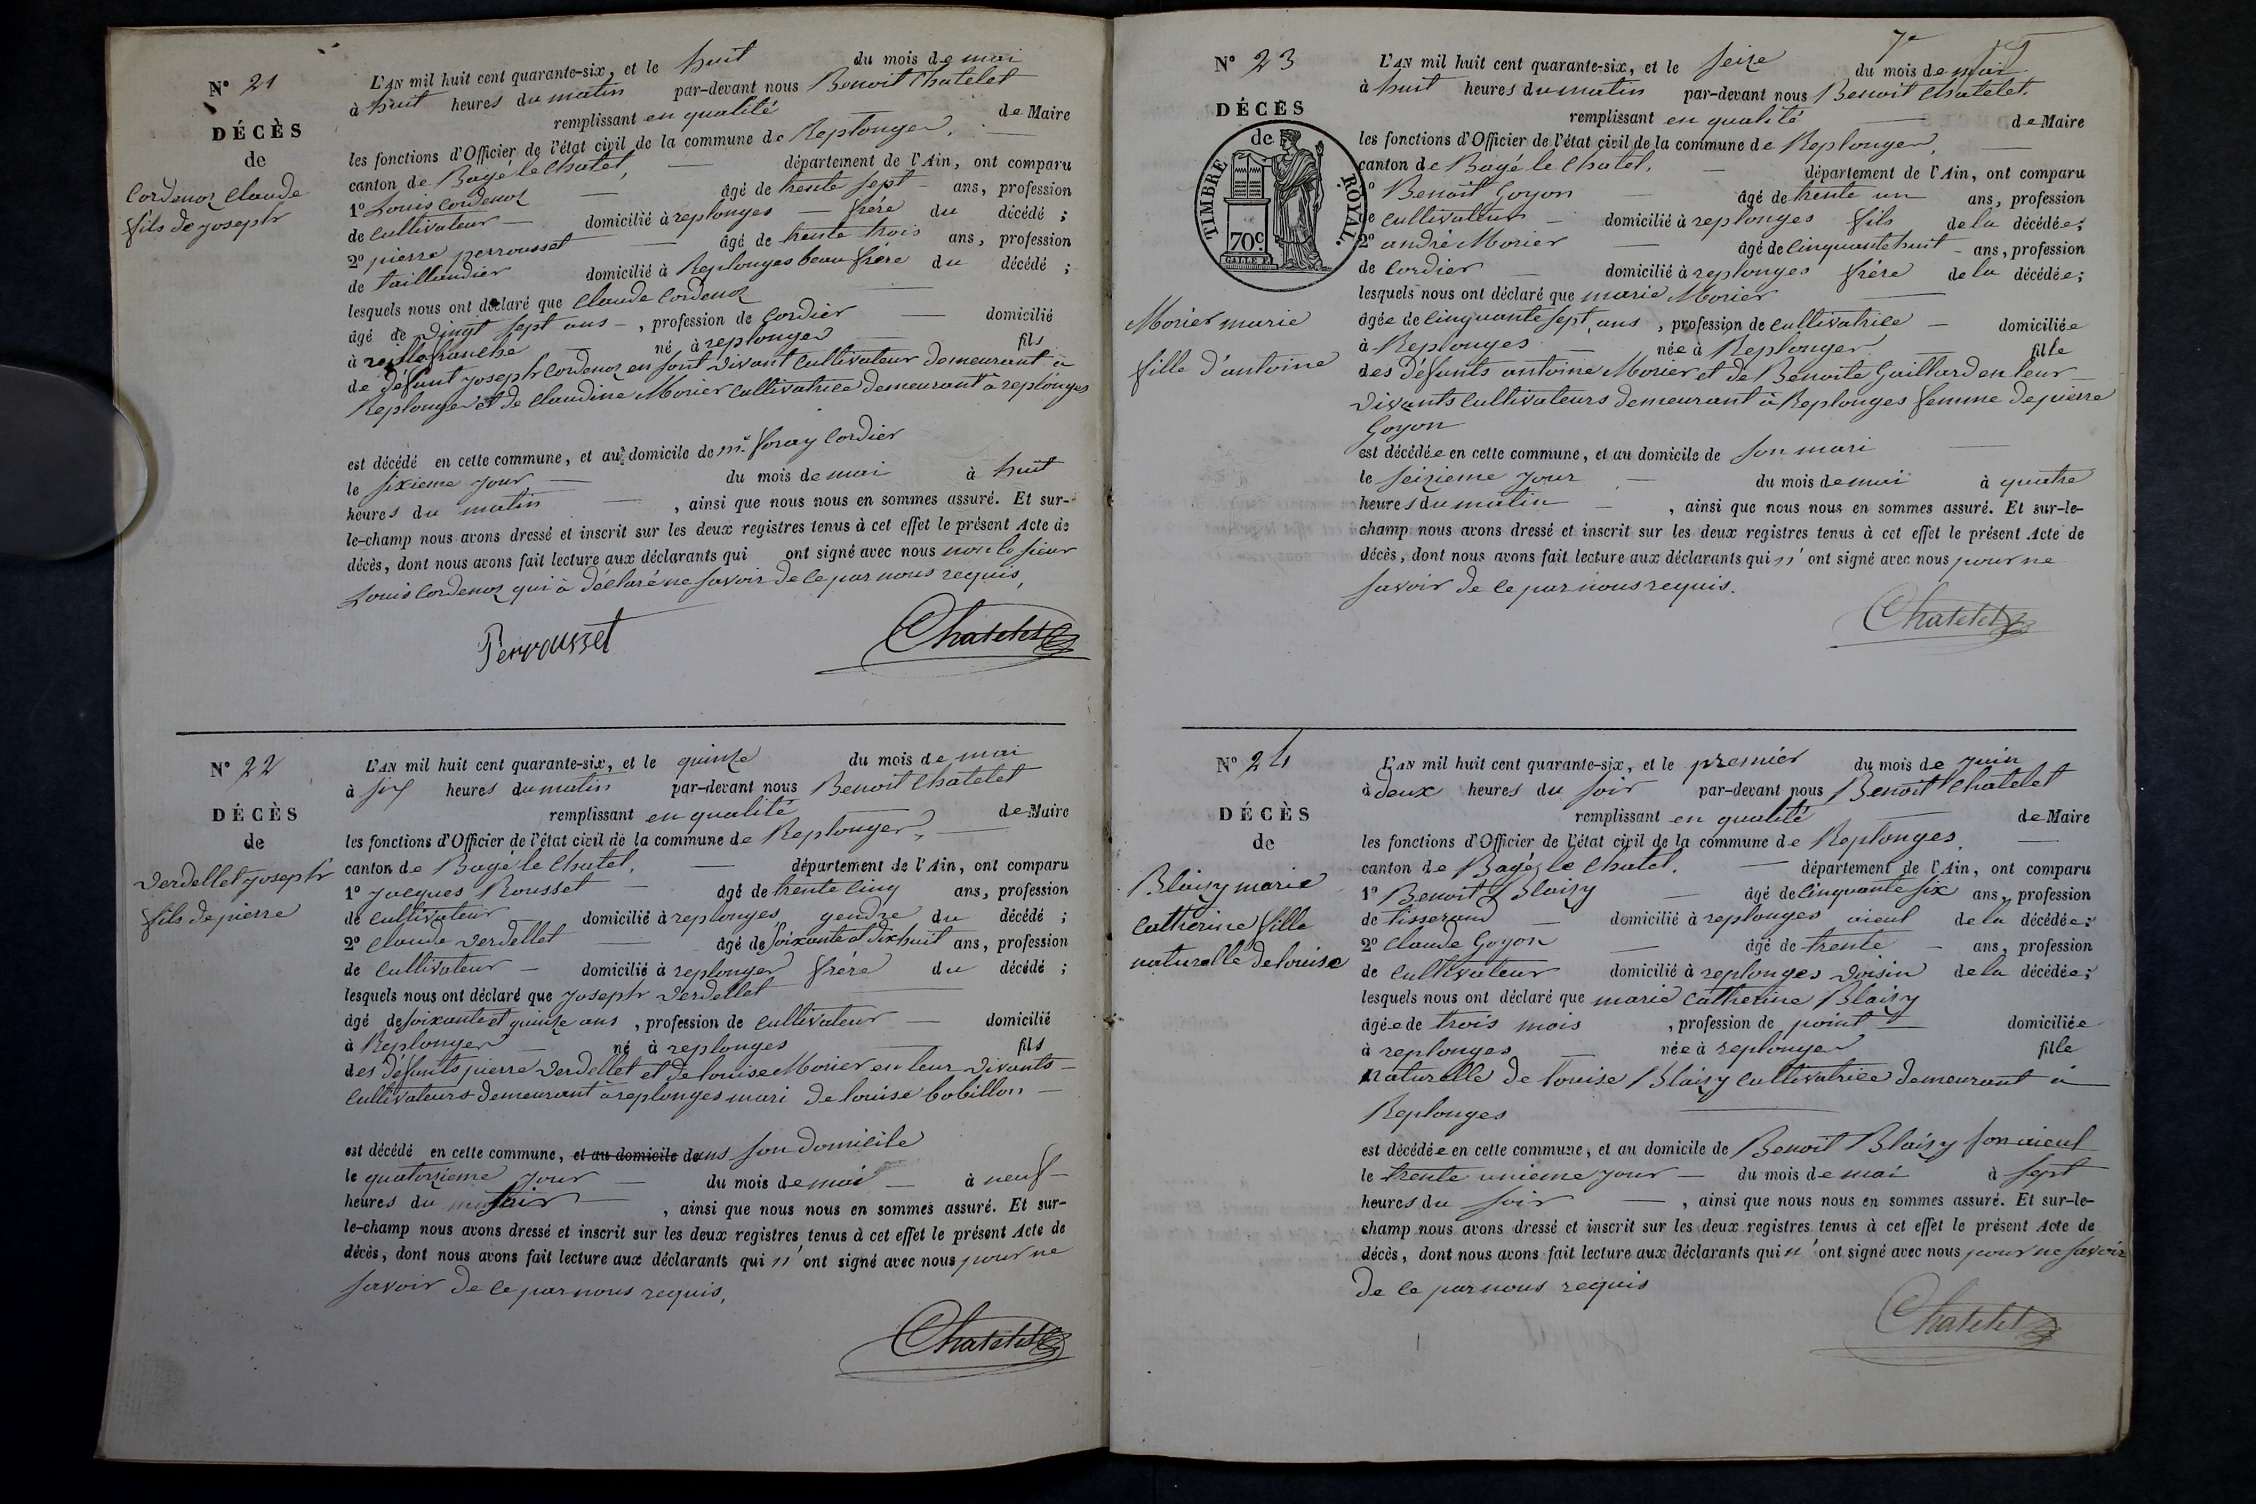 N° 21
DÉCÈS
de
Cordenoz Claude
fils de joseph
L'AN mil huit cent quarante-six, et le huit du mois de mai
à huit heures du matin par-devant nous Benoit Chatelet
remplissant en qualité de Maire
les fonctions d'Officier de l'état civil de la commune de Replonges,
canton de Bagé le Chatel, département de l'Ain, ont comparu
1° Louis Cordenoz âgé de trente sept ans, profession
de cultivateur domicilié à replonges frére du décédé ;
2° pierre perrousset âgé de trente trois ans, profession
de taillandier domicilié à Replonges beau frére du décédé ;
lesquels nous ont déclaré que Claude Cordenoz
âgé de vingt sept ans , profession de Cordier domicilié
à villefranche né à replonges fils
de défunt joseph Cordenoz en sont vivant Cultivateur demeurant à
Replonges et de Claudine Morier Cultivatrice demeurant à replonges
est décédé en cette commune, et au domicile de Mr. foray Cordier
le sixieme jour du mois de mai à huit
heures du matin , ainsi que nous nous en sommes assuré. Et sur-
le-champ nous avons dressé et inscrit sur les deux registres tenus à cet effet le présent Acte de
décès, dont nous avons fait lecture aux déclarants qui ont signé avec nous non le sieur
Louis Cordenoz qui à déclaré ne savoir de ce par nous requis,
Perrousset Chatelet
N° 22
DÉCÈS
de
Verdellet joseph
fils de pierre
L'AN mil huit cent quarante-six, et le quinze du mois de mai
à six heures du matin par-devant nous Benoit Chatelet
remplissant en qualité de Maire
les fonctions d'Officier de l'état civil de la commune de Replonges,
canton de Bagé le Chatel, département de l'Ain, ont comparu
1° jacques Rousset âgé de trente cinq ans, profession
de cultivateur domicilié à replonges gendre du décédé ;
2° Claude Verdellet âgé de soixante et dixhuit ans, profession
de cultivateur domicilié à replonges frére du décédé ;
lesquels nous ont déclaré que joseph Verdellet
âgé de soixante et quinze ans , profession de cultivateur domicilié
à Replonges né à replonges fils
des défunts pierre Verdellet et de louise Morier en leur vivants
Cultivateurs demeurant à replonges mari de louise bobillon
est décédé en cette commune, et au domicile dans son domicile
le quatorzieme jour du mois de mai à neuf
heures du soir , ainsi que nous nous en sommes assuré. Et sur-
le-champ nous avons dressé et inscrit sur les deux registres tenus à cet effet le présent Acte de
décès, dont nous avons fait lecture aux déclarants qui n' ont signé avec nous pour ne
savoir de ce par nous requis,
Chatelet
7e
N° 23
DÉCÈS
de
TIMBRE ROYAL.
70c.
Morier marie
fille d'antoine
L'AN mil huit cent quarante-six, et le seize du mois de mai
à huit heures du matin par-devant nous Benoit Chatelet.
remplissant en qualité de Maire
les fonctions d'Officier de l'état civil de la commune de Replonges,
canton de Bagé le Chatel, département de l'Ain, ont comparu
1° Benoit Goyon âgé de trente un ans, profession
de cultivateur domicilié à replonges fils de la décédée;
2° andré Morier âgé de cinquante huit ans, profession
de Cordier domicilié à replonges frére de la décédée;
lesquels nous ont déclaré que marie Morier
âgée de cinquante sept ans , profession de cultivatrice domiciliée
à Replonges née à Replonges fille
des défunts antoine Morier et de Benoite Gaillard en leur
vivants Cultivateurs demeurant à Replonges femme de pierre
Goyon
est décédée en cette commune, et au domicile de son mari
le seizieme jour du mois de mai à quatre
heures du matin , ainsi que nous nous en sommes assuré. Et sur-le-
champ nous avons dressé et inscrit sur les deux registres tenus à cet effet le présent Acte de
décès, dont nous avons fait lecture aux déclarants qui n' ont signé avec nous pour ne
savoir de ce par nous requis.
Chatelet
N° 24
DÉCÈS
de
Blaizy marie
Catherine fille
naturelle de louise
L'AN mil huit cent quarante-six, et le premiér du mois de juin
à deux heures du soir par-devant nous Benoit Chatelet
remplissant en qualité de Maire
les fonctions d'Officier de l'état civil de la commune de Replonges,
canton de Bagé le Chatel. département de l'Ain, ont comparu
1° Benoit Blaizy âgé de cinquante six ans, profession
de tisserand domicilié à replonges aieul de la décédée;
2° Claude Goyon âgé de trente ans, profession
de Cultivateur domicilié à replonges voisin de la décédée;
lesquels nous ont déclaré que marie Catherine Blaizy
âgée de trois mois , profession de point domiciliée
à replonges née à replonges fille
naturelle de louise Blaizy Cultivatrice demeurant à
Replonges
est décédée en cette commune, et au domicile de Benoit Blaizy son aieul
le trente unieme jour du mois de mai à sept
heures du soir , ainsi que nous nous en sommes assuré. Et sur-le-
champ nous avons dressé et inscrit sur les deux registres tenus à cet effet le présent Acte de
décès, dont nous avons fait lecture aux déclarants qui n' ont signé avec nous pour ne savoir
de ce par nous requis
Chatelet